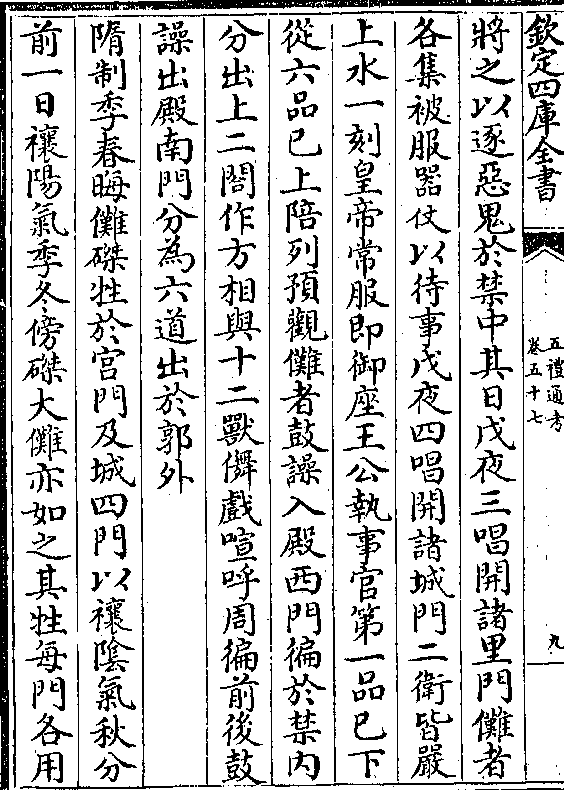 欽定四庫全書
五禮通考
卷五十七
九
將之以逐惡鬼於禁中其日戊夜三唱開諸里門儺者
各集被服器仗以待事戊夜四唱開諸城門二衛皆嚴
上水一刻皇帝常服即御座王公執事官第一品已下
從六品已上陪列預觀儺者鼓譟入殿西門徧於禁内
分出上二閤作方相與十二獸儛戲喧呼周徧前後鼓
譟出殿南門分為六道出於郭外
隋制季春晦儺磔牲於宫門及城四門以禳陰氣秋分
前一日禳陽氣季冬傍磔大儺亦如之其牲每門各用